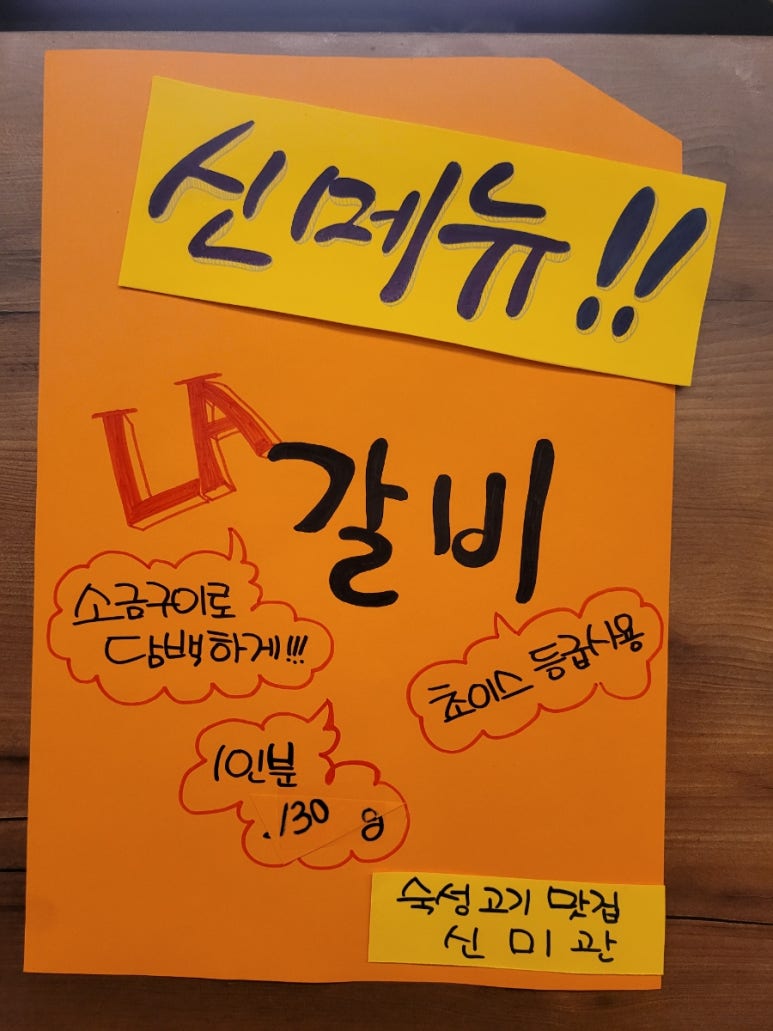 신메뉴!!
LA 갈비
소금구이로
담백하게!!!
초이스 등급사용
1인분
130 g
숙성고기 맛집
신미관